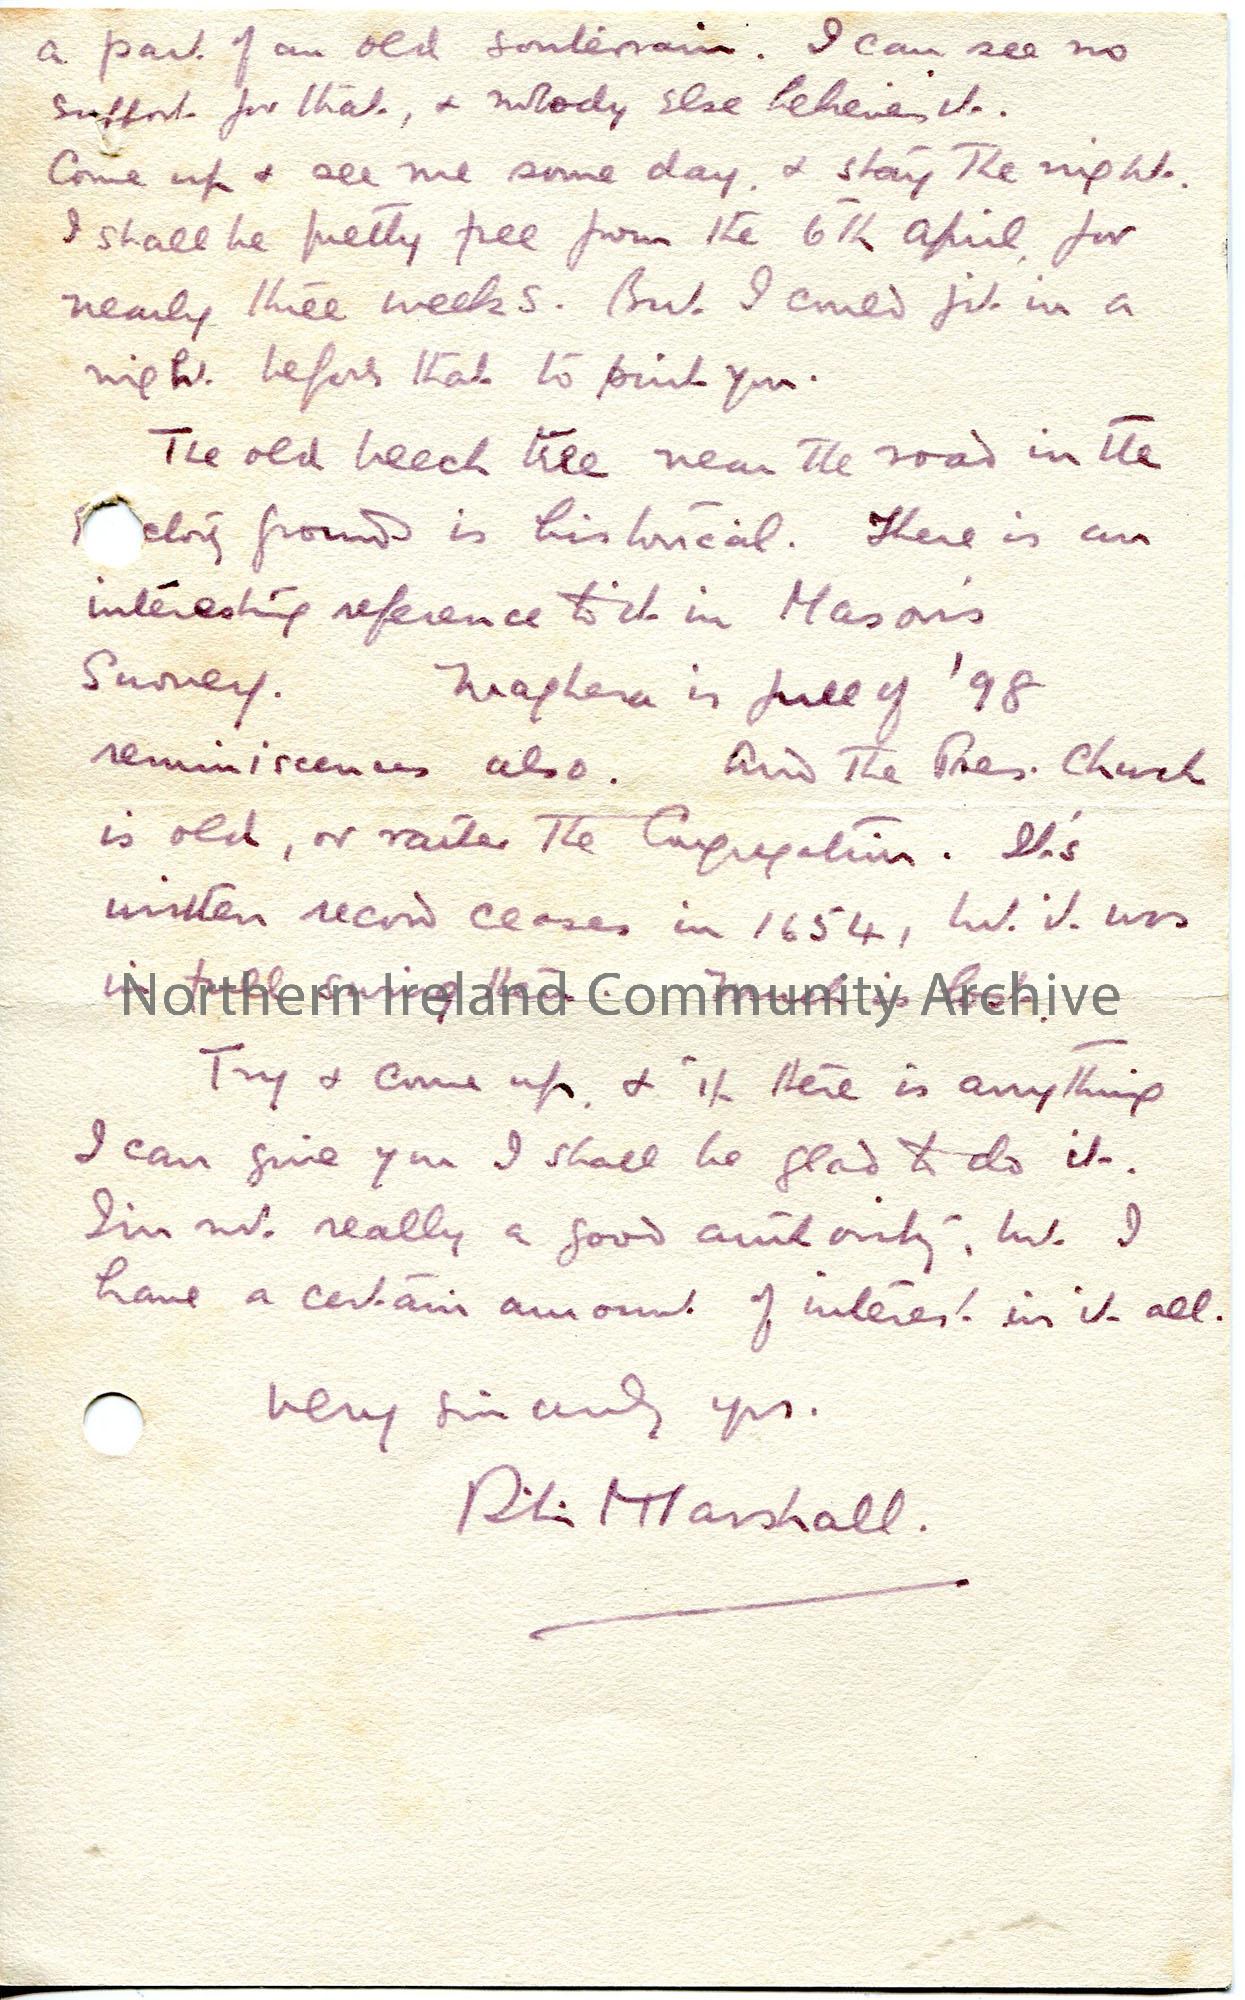 a part of an old souterrain. I can see no
support for that, & nobody else believes it.
Come up & see me some day, & stay the night.
I shall be pretty free from the 6th April, for
nearly three weeks. But I could fit in a
night before that to suit you.
The old beech tree near the road in the
ground is historical. There is an
interesting reference to it in Mason's
Survey. Maghera is full of '98
reminiscences also. And the Pres. Church
is old, or rather the Congregation. It's
written record ceases in 1654, but it was
in full swing then. Much is lost.
Northern Ireland Community Archive
Try & come up, & if there is anything
I can give you I shall be glad to do it.
I'm not really a good authority, but I
have a certain amount of interest in it all.
Very sincerely yrs.
Marshall.